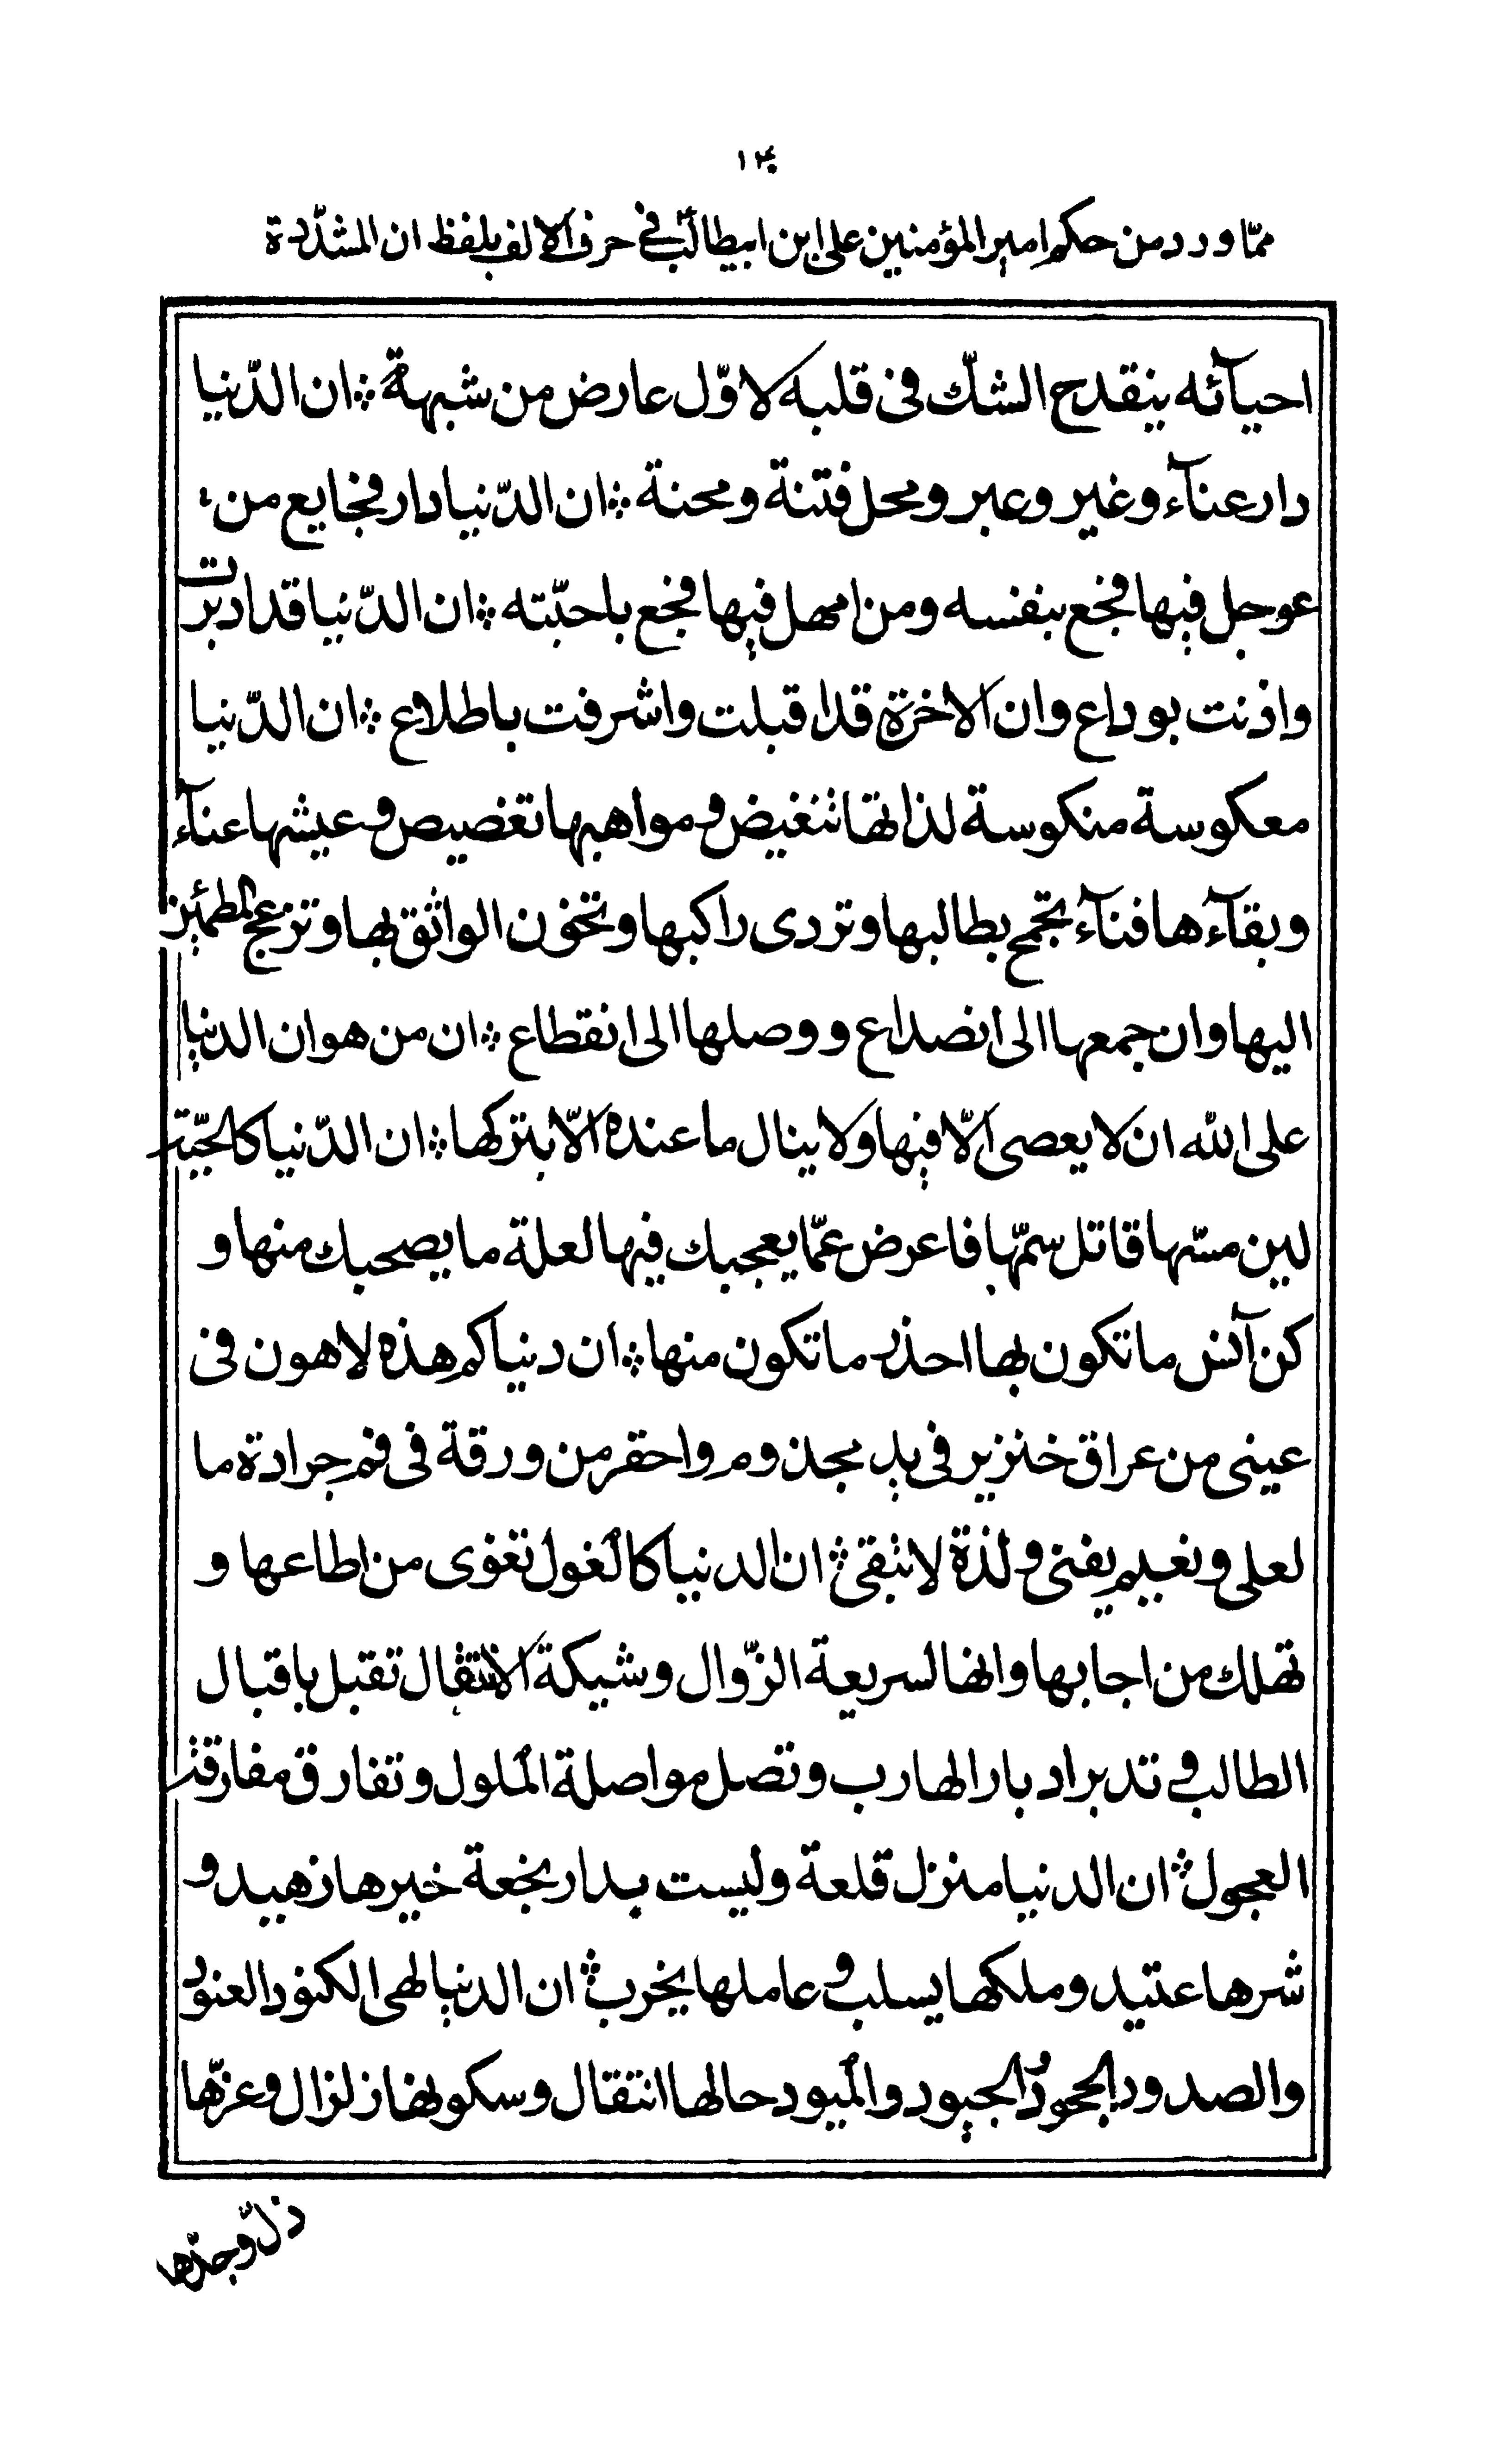 ١٣٠
ممّا ورد من حكم امير المؤمنين علی ابن ابيطالب فی حرف الالف بلفظ ان المشدّدة
احيآئه ينقدح الشكّ فی قلبه لاوّل عارض من شبهة ؞ ان الدّنيا
دار عنآء وغير وعبر ومحل فتنة ومحنة ؞ ان الدّنيا دار فجايع من
عوجل فيها فجع بنفسه ومن امهل فيها فجع باحبّته ؞ ان الدّنيا قد ادبرت
واذنت بوداع وان الاخرة قد اقبلت واشرفت باطلاع ؞ ان الدّنيا
معكوسة منكوسة لذاتها تنغيض و مواهبها تغصيص و عيشها عنآء
و بقآءها فنآء تجمح بطالبها وتردی راكبها وتخون الواثق بها وتزعج المطمئن
اليها وان جمعها الی انصداع و وصلها الی انقطاع ؞ ان من هوان الدنيا
علی الله ان لا يعصی الّا فيها ولا ينال ما عنده الّا بتركها ؞ ان الدّنيا كالحيّة
لين مسّها قاتل سمّها فاعرض عمّا يعجبك فيها لعلة ما يصحبك منها و
كن آنس ما تكون بها احذر ما تكون منها ؞ ان دنياكم هذه لاهون فی
عينی من عراق خنزير فی يد مجذوم واحقر من ورقة فی فم جرادة ما
لعلی و نعيم يفنی و لذة لا تبقی ؞ ان الدنيا كالغول تغوی من اطاعها و
تهلك من اجابها وانها لسريعة الزّوال وشيكة الانتقال تقبل باقبال
الطالب و تدبر ادبار الهارب و تصل مواصلة الملول وتفارق مفارقة
العجول ؞ ان الدنيا منزل قلعة وليست بدار نجعة خيرها زهيد و
شرها عتيد وملكها يسلب و عاملها يخرب ؞ ان الدنيا لهی الكنود العنود
والصدود الجحود الجيود والميود حالها انتقال وسكونها زلزال وعزّها
ذلّ وجدّها